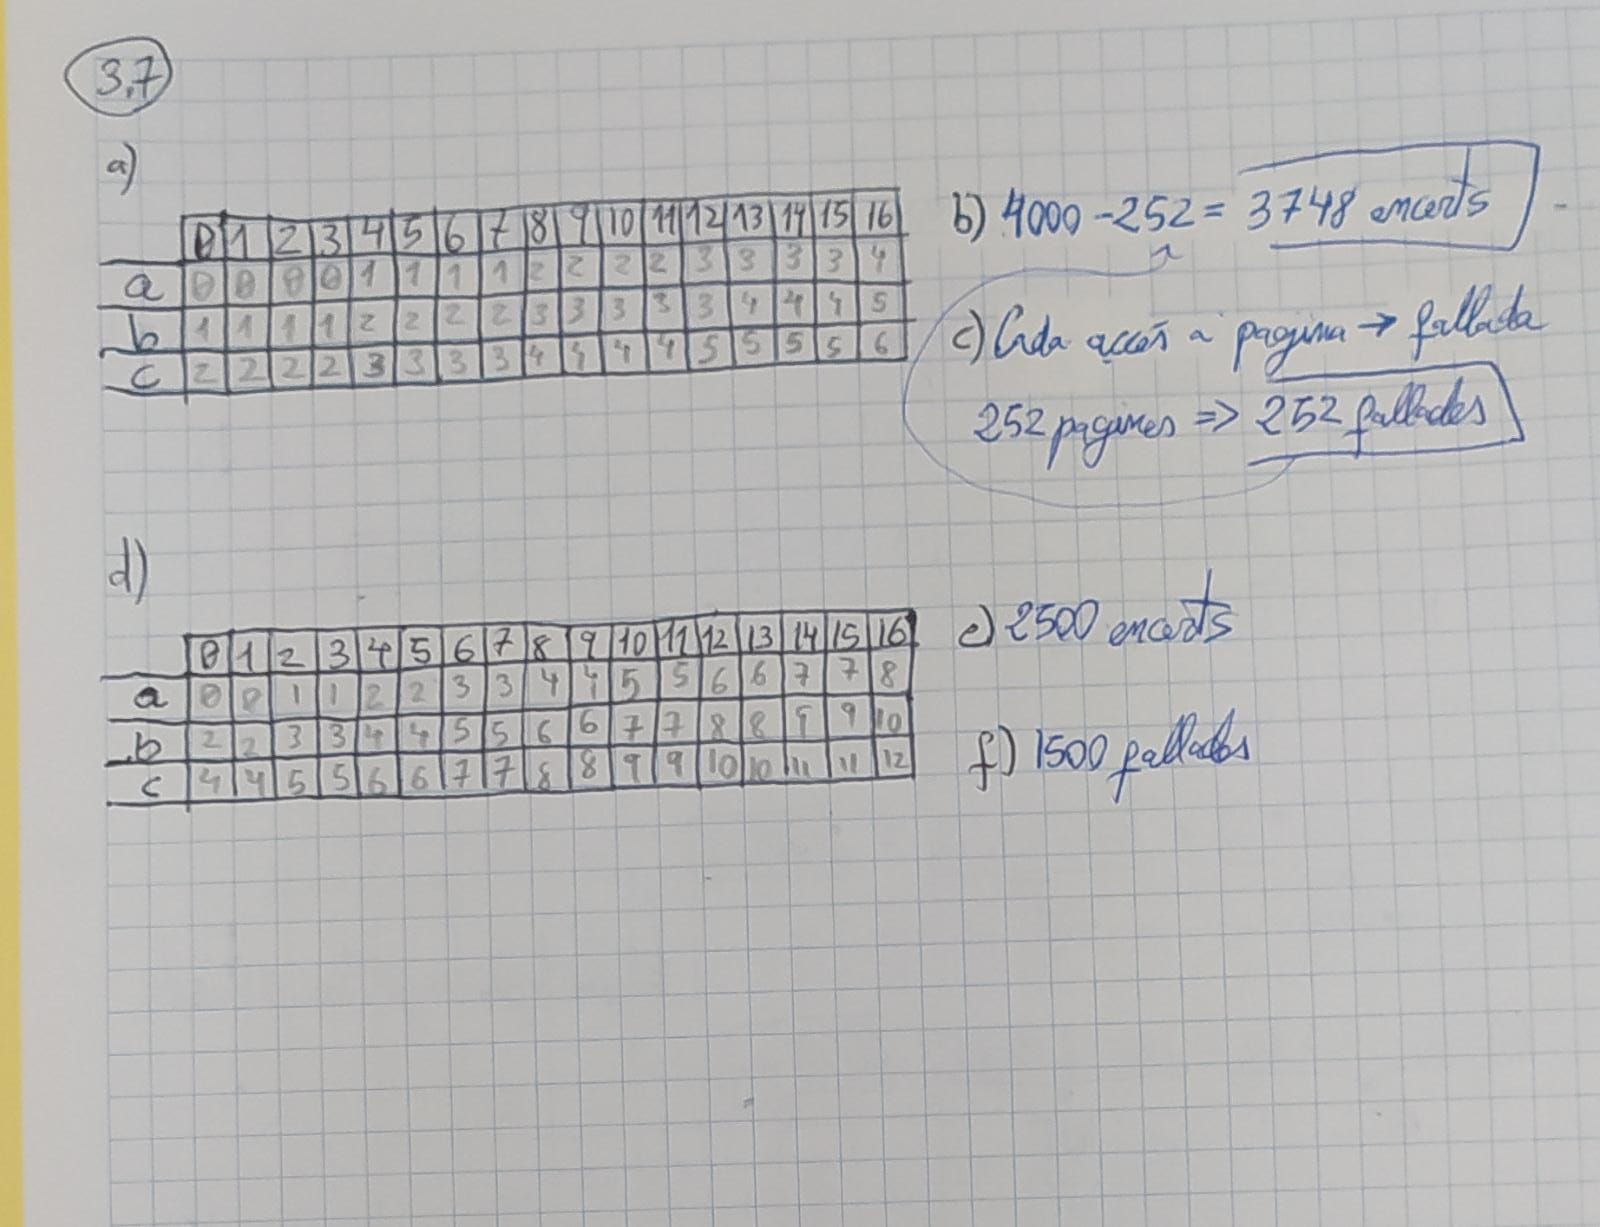 3.7
a)
0 1 2 3 4 5 6 7 8 9 10 11 12 13 14 15 16
a 0 0 0 0 1 1 1 1 2 2 2 2 3 3 3 3 4
b 1 1 1 1 2 2 2 2 3 3 3 3 3 4 4 4 5
c 2 2 2 2 3 3 3 3 4 4 4 4 5 5 5 5 6
b) 4000 - 252 = 3748 encerts
c) Cada accés a pagina → fallada
252 pagines => 252 fallades
d)
0 1 2 3 4 5 6 7 8 9 10 11 12 13 14 15 16
a 0 0 1 1 2 2 3 3 4 4 5 5 6 6 7 7 8
b 2 2 3 3 4 4 5 5 6 6 7 7 8 8 9 9 10
c 4 4 5 5 6 6 7 7 8 8 9 9 10 10 11 11 12
e) 2500 encerts
f) 1500 fallades